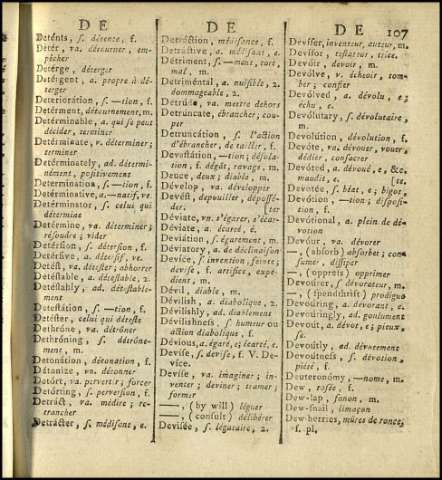 DE
DE
DE 107
Detents, ſ. détente, f.
Detér, va. détourner, em-
pêcher
Detérge, déterger
Detérgent, a. propre à dé-
terger
Deterioration, ſ. —tion, f.
Detérment, détournement, m.
Detérminable, a. qui ſe peut
décider, terminer
Detérminate, v. déterminer;
terminer
Detérminately, ad. détermi-
nément, poſitivement
Determination, ſ. —tion, f.
Detérminative, a. —natif, ve
Determinator, ſ. celui qui
détermine
Detérmine, va. déterminer;
réſoudre; vider
Detérſion, ſ. déterſion, f.
Detérſive, a. déterſif, ve
Deteſt, va. déteſter; abhorrer
Deteſtable, a. déteſtable, 2.
Deteſtably, ad. déteſtable-
ment
Deteſtation, ſ. —tion, f.
Deteſter, celui qui déteſte
Dethróne, va. détrôner
Dethróning, ſ. détrône-
ment, m.
Detonátion, détonation, f.
Détonize, va. détonner
Detórt, va. pervertir; forcer
Detórting, ſ. perverſion, f.
Detráct, va. médire; re-
trancher
Detrácter, ſ. médiſant, e.
Detráction, médiſance, f.
Detráctive, a. médiſant, e.
Détriment, ſ. —ment, tort,
mal, m.
Detriméntal, a. nuiſible, 2.
dommageable, 2.
Detrúde, va. mettre dehors
Detruncate, ébrancher; cou-
per
Detruncátion, ſ. l'action
d'ébrancher, de tailler, f.
Devaſtátion, —tion; déſola-
tion, f. dégât, ravage, m.
Deuce, deux; diable, m.
Devélop, va. développer
Devéſt, dépouiller, dépoſſé-
der
Déviate, vn. s'égarer, s'écar-
ter
Deviate, a. écaré, é.
Deviátion, ſ. égarement, m.
Déviatory, a. de déclinaiſon
Device, ſ. invention, feinte;
deviſe, f. artifice, expé-
dient, m.
Dévil, diable, m.
Dévilish, a. diabolique, 2.
Dévilishly, ad. diablement
Dévilishneſs, ſ. humeur ou
action diabolique, f.
Dévious, a. égaré, e; écarté, e.
Deviſe, ſ. deviſe, f. V. De-
vice.
Deviſe, va. imaginer; in-
venter; deviner; tramer;
former
—, (by will) léguer
—, (conſult) délibérer
Deviſée, ſ. légataire, 2.
Deviſor, inventeur, auteur, m.
Deviſor, teſtateur, trice.
Devóir, devoir, m.
Devólve, v. échéoir, tom-
ber; confier
Devolved, a. dévolu, e;
échu, e.
Devólutary, ſ. dévolutaire,
m.
Devolution, dévolution, f.
Devóte, va. dévouer, vouer,
dédier, conſacrer
Devóted, a. dévoué, e, &c.
Devotée, ſ. béat, e; bigot,
[te, e.
Devótion, —tion; diſpoſi-
tion, f.
Devótional, a. plein de dé-
votion
Devóur, va. dévorer
—, (abſorb) abſorber; con-
ſumer, diſſiper
—, (oppreſs) opprimer
Devourer, ſ. dévorateur, m.
—, (ſpendthrift) prodigue
Devouring, a. dévorant, e.
Devouringly, ad. goulument
Devout, a. dévot, e; pieux,
ſe.
Devoutly, ad. dévotement
Devoutneſs, ſ. dévotion,
piété, f.
Deuteronómy, —nome, m.
Dew, roſée, f.
Dew-lap, fanon, m.
Dew-ſnail, limaçon
Dew-berries, mûres de ronce,
f. pl.